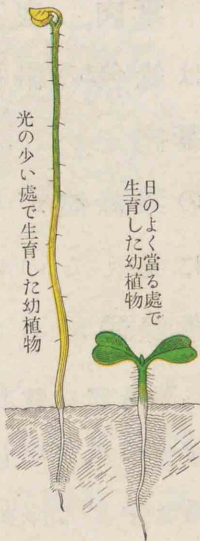 日のよく當る處で
生育した幼植物
光の少い處で生育した幼植物